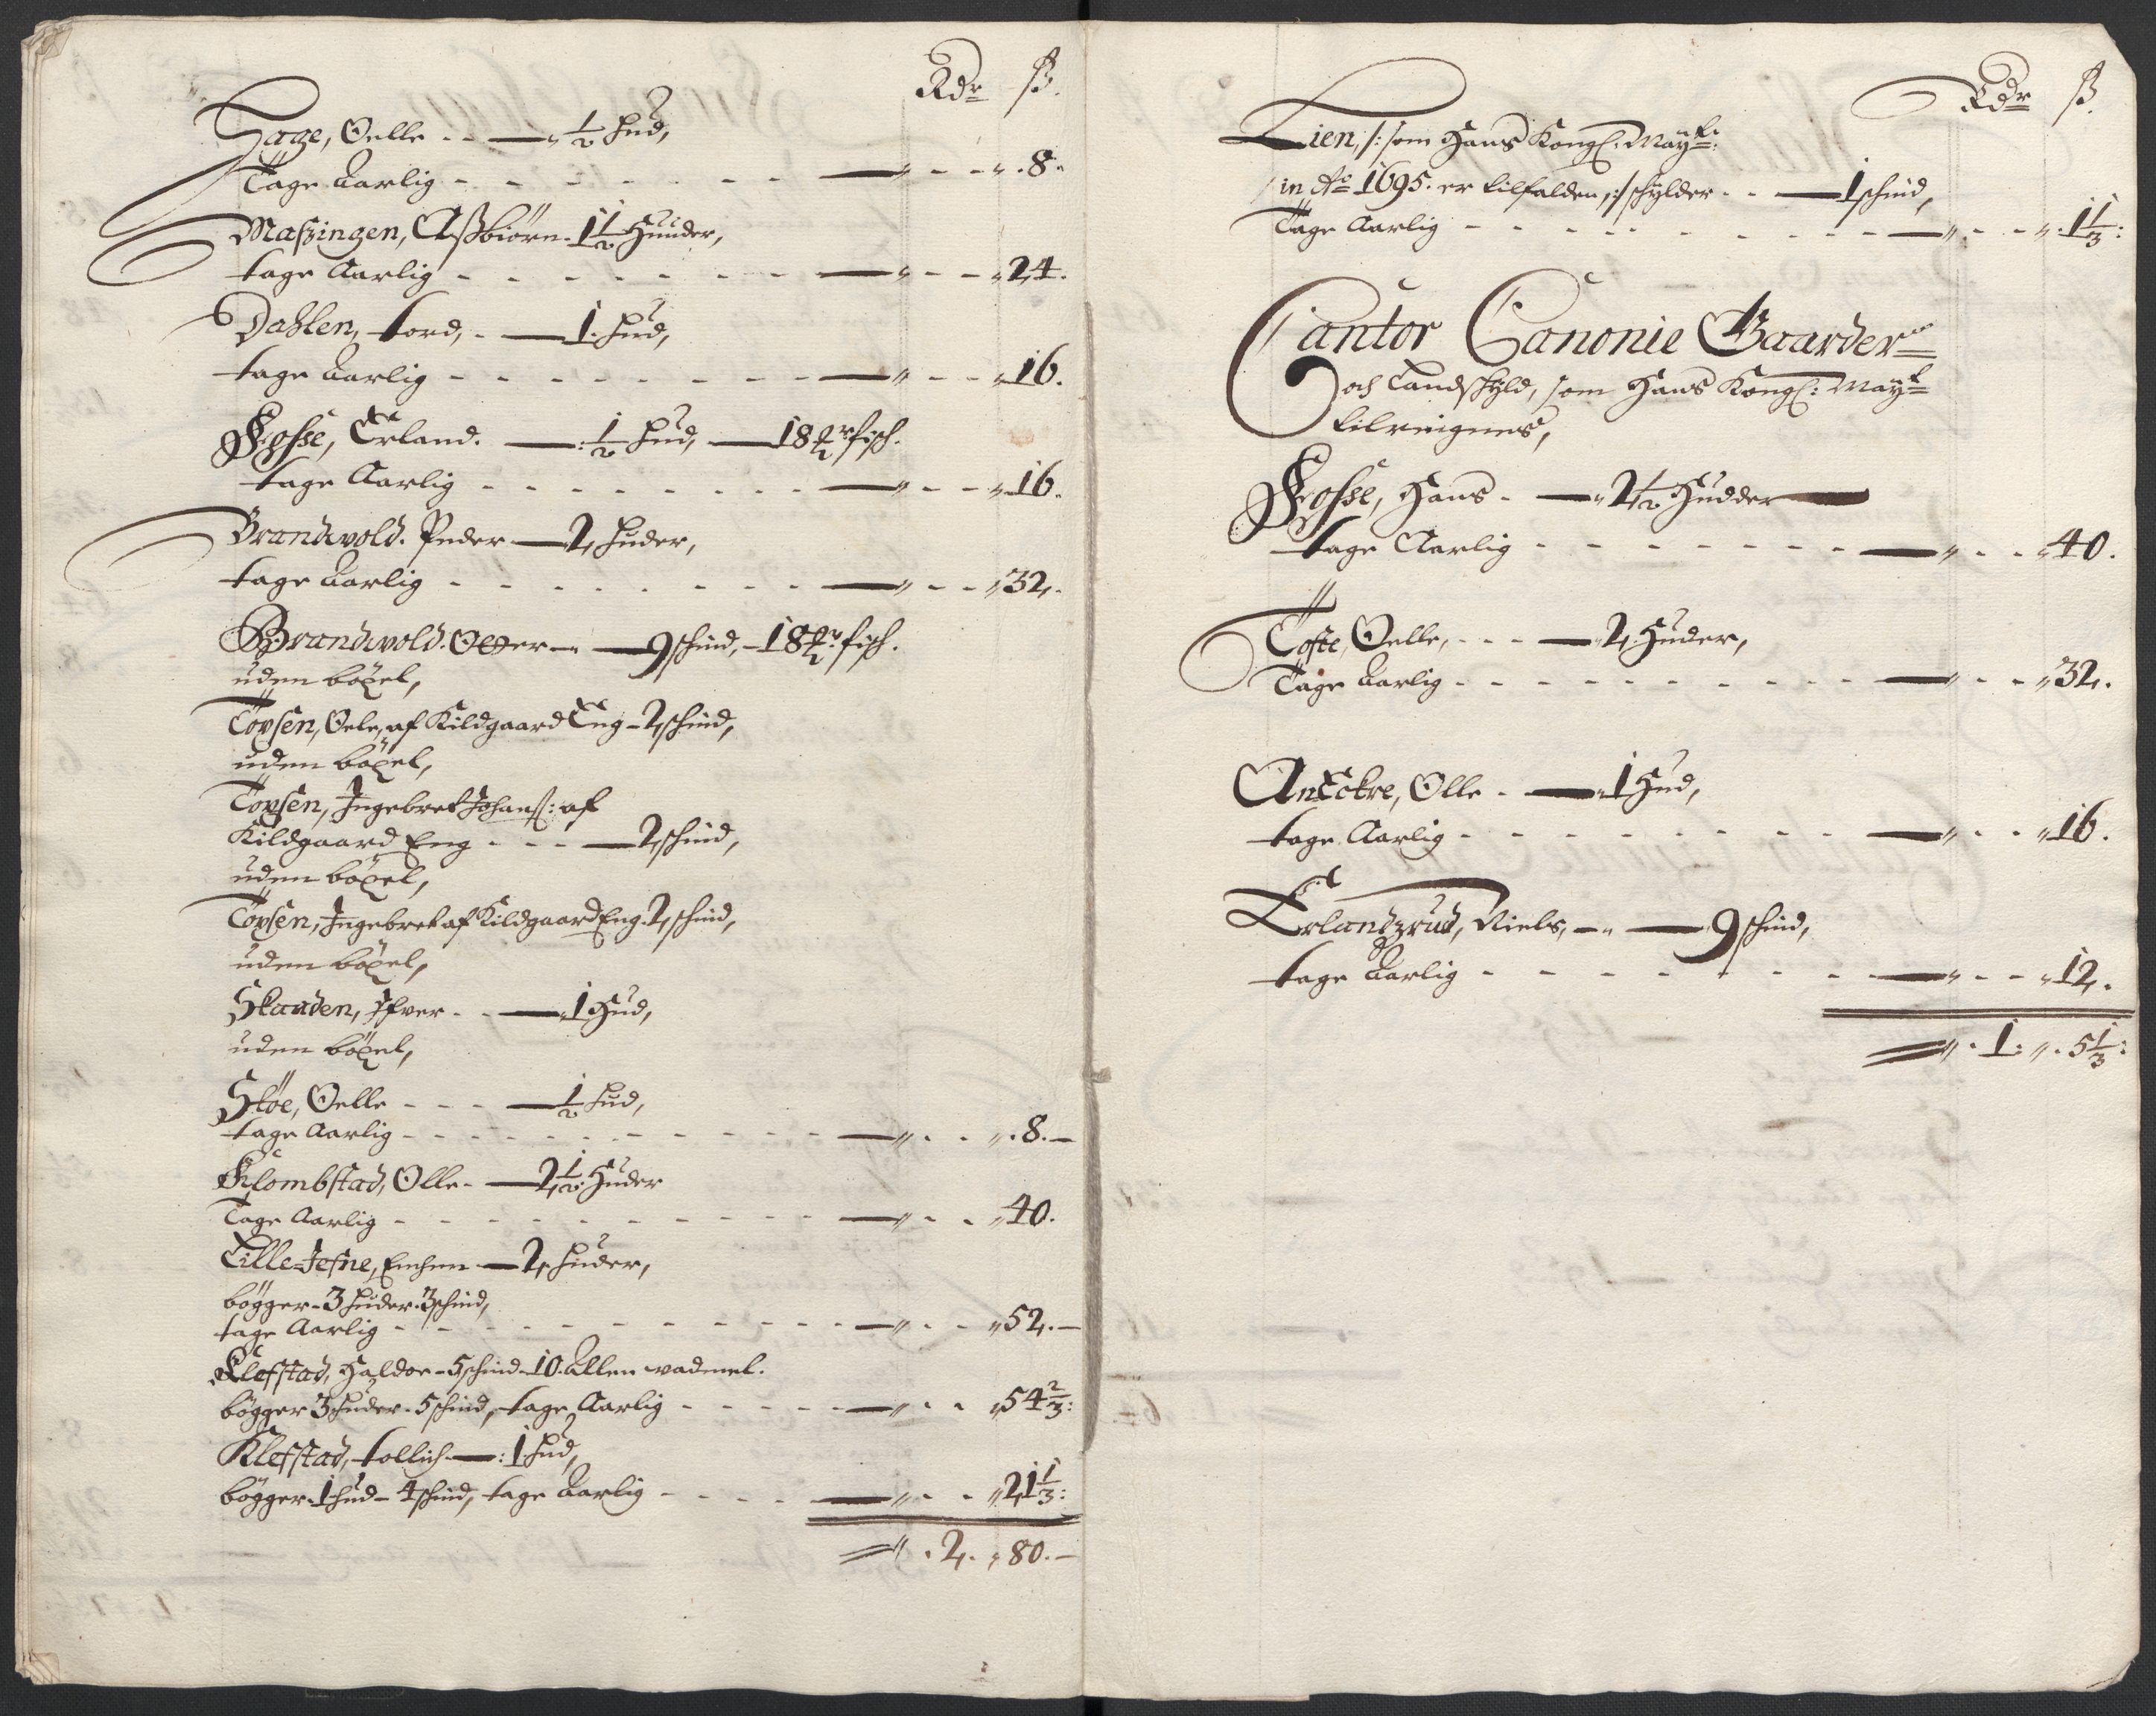 Rdr ß.
Hage, Oelle - - — " 1/2 hud,
Tage Aarlig - - - — " - - " 8 "
Maszingen, Aßbiörn - 1 1/2 Huuder,
tage Aarlig - - - — " - - " 24.
Dahlen, tord, - — 1. hud,
tage Aarlig - - - — " - - " 16.
Fosse, Erland. — : 1/2 hud, — 18 fisch.
tage Aarlig - - - — " - - " 16.
Brandvold. Peder — 2 huder,
tage Aarlig - - - — " - - " 32.
Brandvold. Otter — — 9 schind, - 18 fisch.
uden böxel,
Topsen, Oele, af Kildgaard Eng - 2 schind,
uden böxel,
Topsen, Ingebret Johanß: af
Kildgaard Eng - - - — 2 schind,
uden böxel,
Topsen, Ingebret af Kildgaard Eng. 2 schind,
uden böxel,
Skanden, Ifver - - — 1 Hud,
uden böxel,
Stöe, Oelle - - - — 1/2 hud,
tage Aarlig - - - — " - - " 8. —
Klombstad, Olle - — 2 1/2: Huder
Tage Aarlig - - - — " - - " 40.
Lille-Jefne, — 2 huder,
bögger - 3 huder - 3 schind,
tage Aarlig - - - — " - - " 52. —
Klefstad, Haldor - 5 schind - 10. Allen vadmel.
bögger 3 huder - 5 schind, tage Aarlig - - - — " - - " 54 2/3:
Klefstad, tollich — : 1 hud,
bögger - 1 hud - 4 schind, tage Aarlig - - - — " - - " 21 1/3:
" . 2. " 80. —
Rdr ß.
Lien, /: som Hans Kongl: Mayt:
in Ao 1695. er tilfalden, :/ schylder - - — 1 schind,
Tage Aarlig - - - — " - - " 1 1/3:
Cantor Canonie Gaarder
och Landschyld, som Hans Kongl: Mayt
tilreignes,
Fosse, Hans - — " 2 1/2 Hudder —
tage Aarlig - - - — " - - " 40.
Tofte, Oelle, - - - — 2 Huder,
Tage Aarlig - - - — " - - " 32.
AnEckre, Olle - — " 1 Hud,
tage Aarlig - - - — " - - " 16.
Erlandzrud, Niels, — " — 9 schind,
tage Aarlig - - - — " - - " 12.
" . 1: " . 5 1/3: